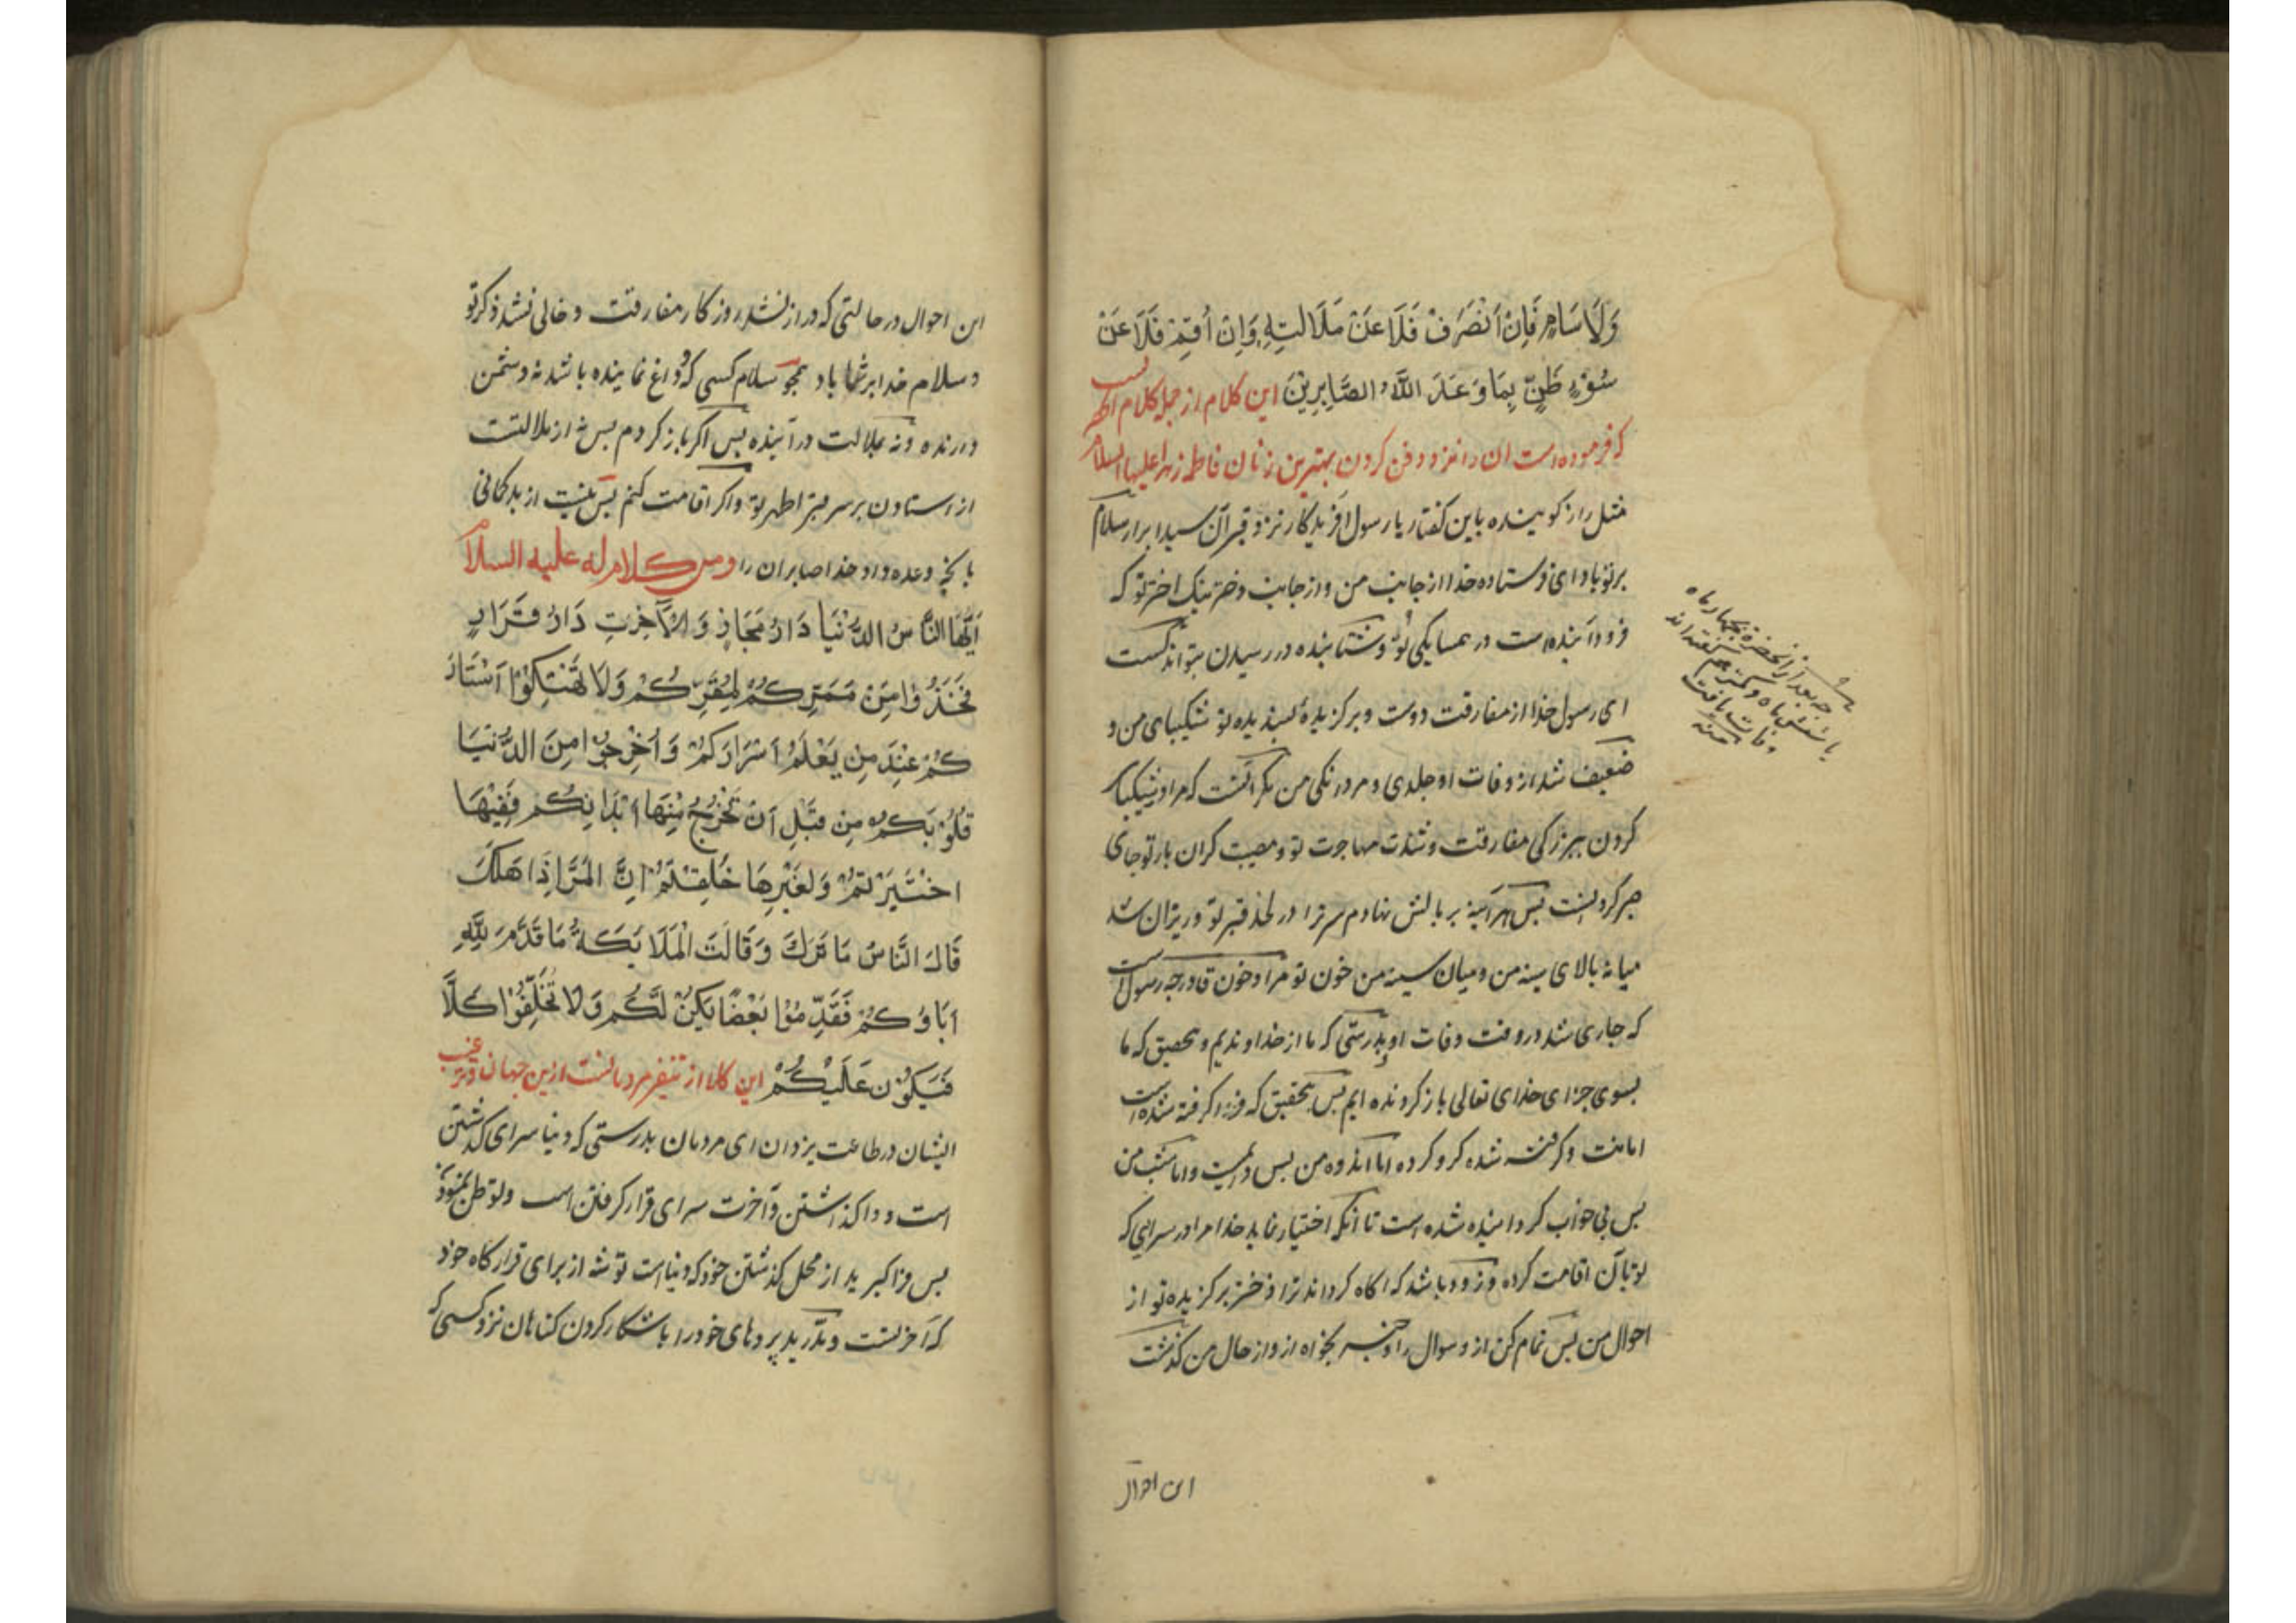 وَلَا سَامٍ فَاِنْ اَنْصَرِفْ فَلَا عَنْ مَلَالَتٍهٍ وَاِنْ اُقِمْ فَلَا عَنْ
سُوْءِ ظَنٍّ بِمَا وَعَدَ اللّٰهُ الصَّابِرِيْنَ این کلام از جمله کلام
که فرموده است ان را نزد دفن کردن بهترین زنان فاطمه زهرا علیها السلام
مثل راز کوینده باین کفتار یا رسول افریدکار نزد قبر آن سید ابرار سلام
بر تو باد ای فرستاده خدا از جانب من و از جانب دختر نیک اختر تو که
فرود آینده است در همسایکی تو و شتابنده در رسیدن بتو اندکست
ای رسول خدا از مفارقت دوست و برکزیدهٔ پسندیده تو شکیبای من و
ضعیف شد از وفات او جلدی و مردانکی من مکر انست که مرا در شکیبا
کردن ببزرکی مفارقت و شدت مهاجرت تو و مصیبت کران بار تو جای
صبر کردنست پس هرآینه بر بالش نهادم سر ترا در لحد قبر تو و ریزان شد
میانه بالای سینه من و میان سینه من خون تو مراد خون
که جاری شد در وقت وفات او بدرستی که ما از خداوندیم و بتحقیق که ما
بسوی جزای خدای تعالی باز کردنده ایم پس بتحقیق که فرا کرفته شده است
امانت و کرفته شده کرو کرده اما اندوه من پس دایمیست و اما شب من
پس بی خواب کردانیده شده است تا آنکه اختیار نماید خدا مرا در سرایی که
تو بآن اقامت کرده و زود باشد که اکاه کرداند ترا دختر برکزیده تو از
احوال من پس تمام کن از و سوال را و خبر بخواه از و از حال من کذشت
این احوال
بعد از آنحضرت بچهار ماه
یا شش ماه و کمتر هم کفته اند
وفات یافت
منه
این احوال در حالتی که دراز نشد روزکار مفارقت و خالی نشد ذکر تو
و سلام خدا بر شما باد همچو سلام کسی که وداع نماینده باشد نه دشمن
دارنده و نه بملالت درآینده پس اکر باز کردم پس نه از ملالتست
از استادن بر سر قبر اطهر تو و اکر اقامت کنم پس نیست از بد کمانی
بانچه وعده داد خدا صابران را ومن کلام له علیه السلام
اَیُّهَا النَّاسُ الدُّنْیَا دَارُ مَجَازٍ وَ الْآخِرَتِ دَارُ قَرَارٍ
فَخُذُوْا مِنْ مَمَرِّکُمْ لِمَقَرِّکُمْ وَلَا تَهْتِکُوْا اَسْتَارَ
کُمْ عِنْدَ مِنْ یَعْلَمُ اَسْرَارَکُمْ وَ اَخْرِجُوْا مِنَ الدُّنْیَا
قُلُوْبَکُمْ مِنْ قَبْلِ اَنْ تَخْرُجَ مِنْهَا اَبْدَانِکُمْ فَفِیْهَا
اخْتُبِرْتُمْ وَ لِغَیْرِهَا خُلِقْتُمْ اِنَّ الْمَرْءَ اِذَا هَلَکَ
قَالَ النَّاسُ مَا تَرَکَ وَ قَالَتِ الْمَلَائِکَةُ مَا قَدَّمَ لِلّٰهِ
اٰبَاؤُکُمْ فَقَدِّمُوْا بَعْضًا یَکُنْ لَّکُمْ وَ لَا تُخَلِّفُوْا کُلًّا
فَیَکُوْن عَلَیْکُمْ این کلام از تنفیر مردمانست ازین جهان و ترغیب
ایشان در طاعت یزدان ای مردمان بدرستی که دنیا سرای کذشتن
است و واکذاشتن و آخرت سرای قرار کرفتن است و توطن نمودن
پس فرا کیرید از محل کذشتن خود که دنیاست توشه از برای قرارکاه خود
که آخرتست و مدرید پردهای خود را باشکار کردن کناهان نزد کسی که